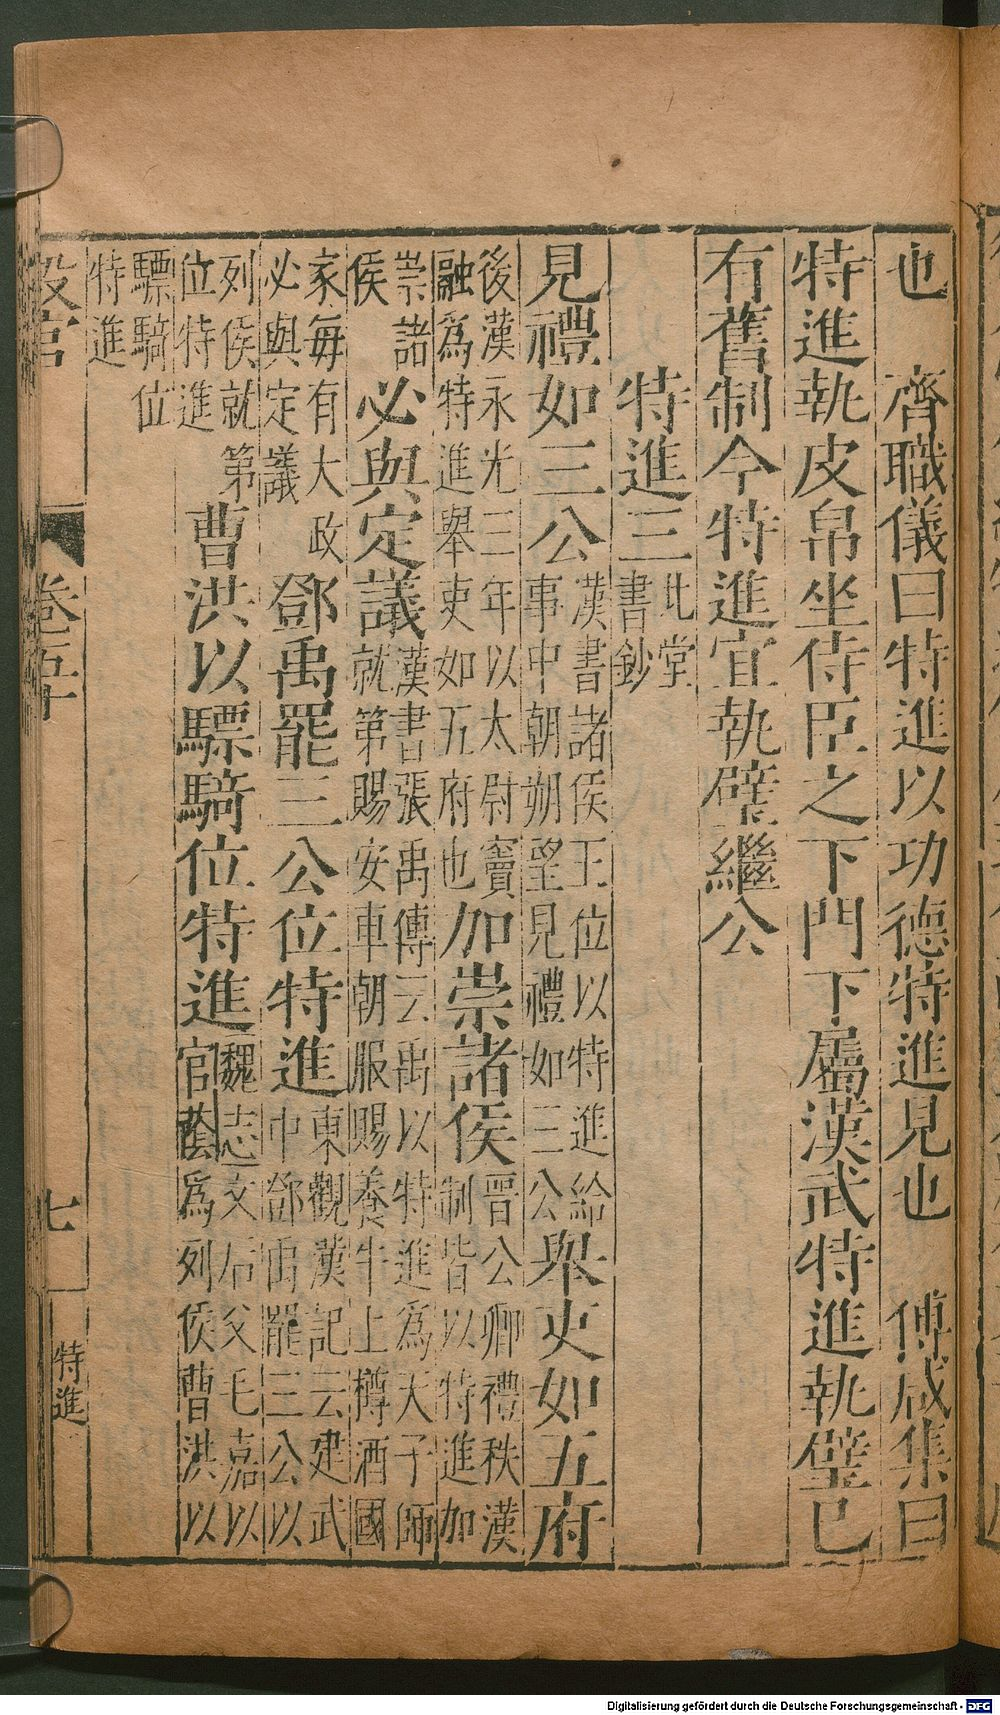 也　齊職儀曰特進以功德特進見也　傅咸集曰
特進執皮帛坐侍臣之下門下屬漢武特進執璧已
有舊制今特進宜執璧繼公
特進三北堂書鈔
見禮如三公漢書諸侯王位以特進給事中朝朔望見禮如三公舉吏如五府
後漢永光三年以太尉竇融爲特進舉吏如五府也加崇諸侯晉公卿禮秩漢制皆以特進加
崇諸侯必與定議漢書張禹傳云禹以特進爲天子師就第賜安車朝服賜養牛上樽酒國
家每有大政必與定議鄧禹罷三公位特進東觀漢記云建武中鄧禹罷三公以
列侯就第位特進曹洪以驃騎位特進魏志文后父毛嘉以官蔭爲列侯曹洪以
驃騎位特進
設官　卷五十　七　特進
Digitalisierung gefördert durch die Deutsche Forschungsgemeinschaft - DFG